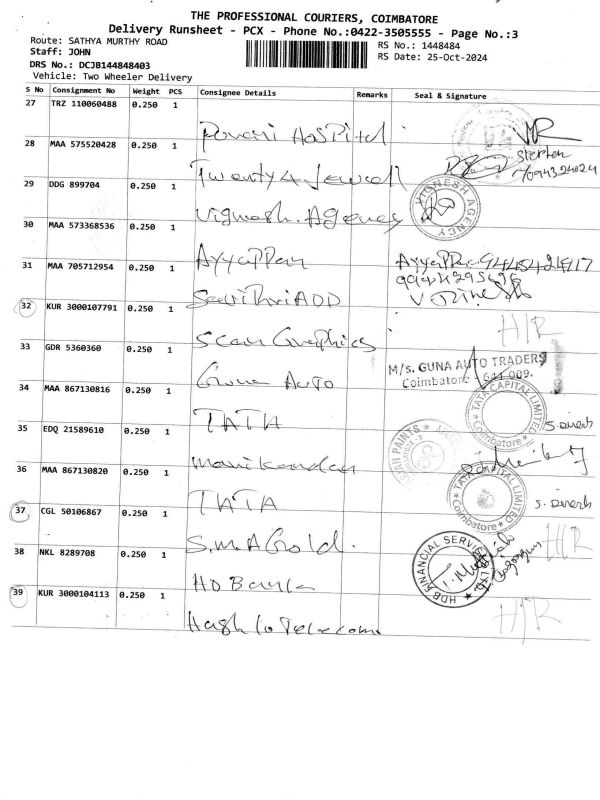 THE PROFESSIONAL COURIERS, COIMBATORE
Delivery Runsheet - PCX - Phone No.:0422-3505555 - Page No.:3
Route: SATHYA MURTHY ROAD
RS No.: 1448484
Staff: JOHN
RS Date: 25-Oct-2024
DRS No.: DCJB144848403
Vehicle: Two Wheeler Delivery
S No Consignment No Weight PCS Consignee Details Remarks Seal & Signature
27 TRZ 110060488 0.250 1
Hospital
28 MAA 575520428 0.250 1
Stephen
Twenty4 Jewell
29 DDG 899704 0.250 1
VIGNESH AGENCY
Vignash. Agency
30 MAA 573368536 0.250 1
Ayyappan
31 MAA 705712954 0.250 1
Ayyappan
SavithriADD
32 KUR 3000107791 0.250 1
H/R
Scan Graphics
33 GDR 5360360 0.250 1
M/s. GUNA AUTO TRADERS
Coimbatore - 641 009.
Guna Auto
34 MAA 867130816 0.250 1
TATA CAPITAL LIMITED
Coimbatore
S. Dinesh
TATA
35 EDQ 21589610 0.250 1
ASIAN PAINTS
Manikandan
36 MAA 867130820 0.250 1
TATA CAPITAL LIMITED
Coimbatore
S. Dinesh
TATA
37 CGL 50106867 0.250 1
H/R
S.M.A Gold.
38 NKL 8289708 0.250 1
HDB FINANCIAL SERVICES LTD.
HD Bank
39 KUR 3000104113 0.250 1
H/R
Hash Telecome